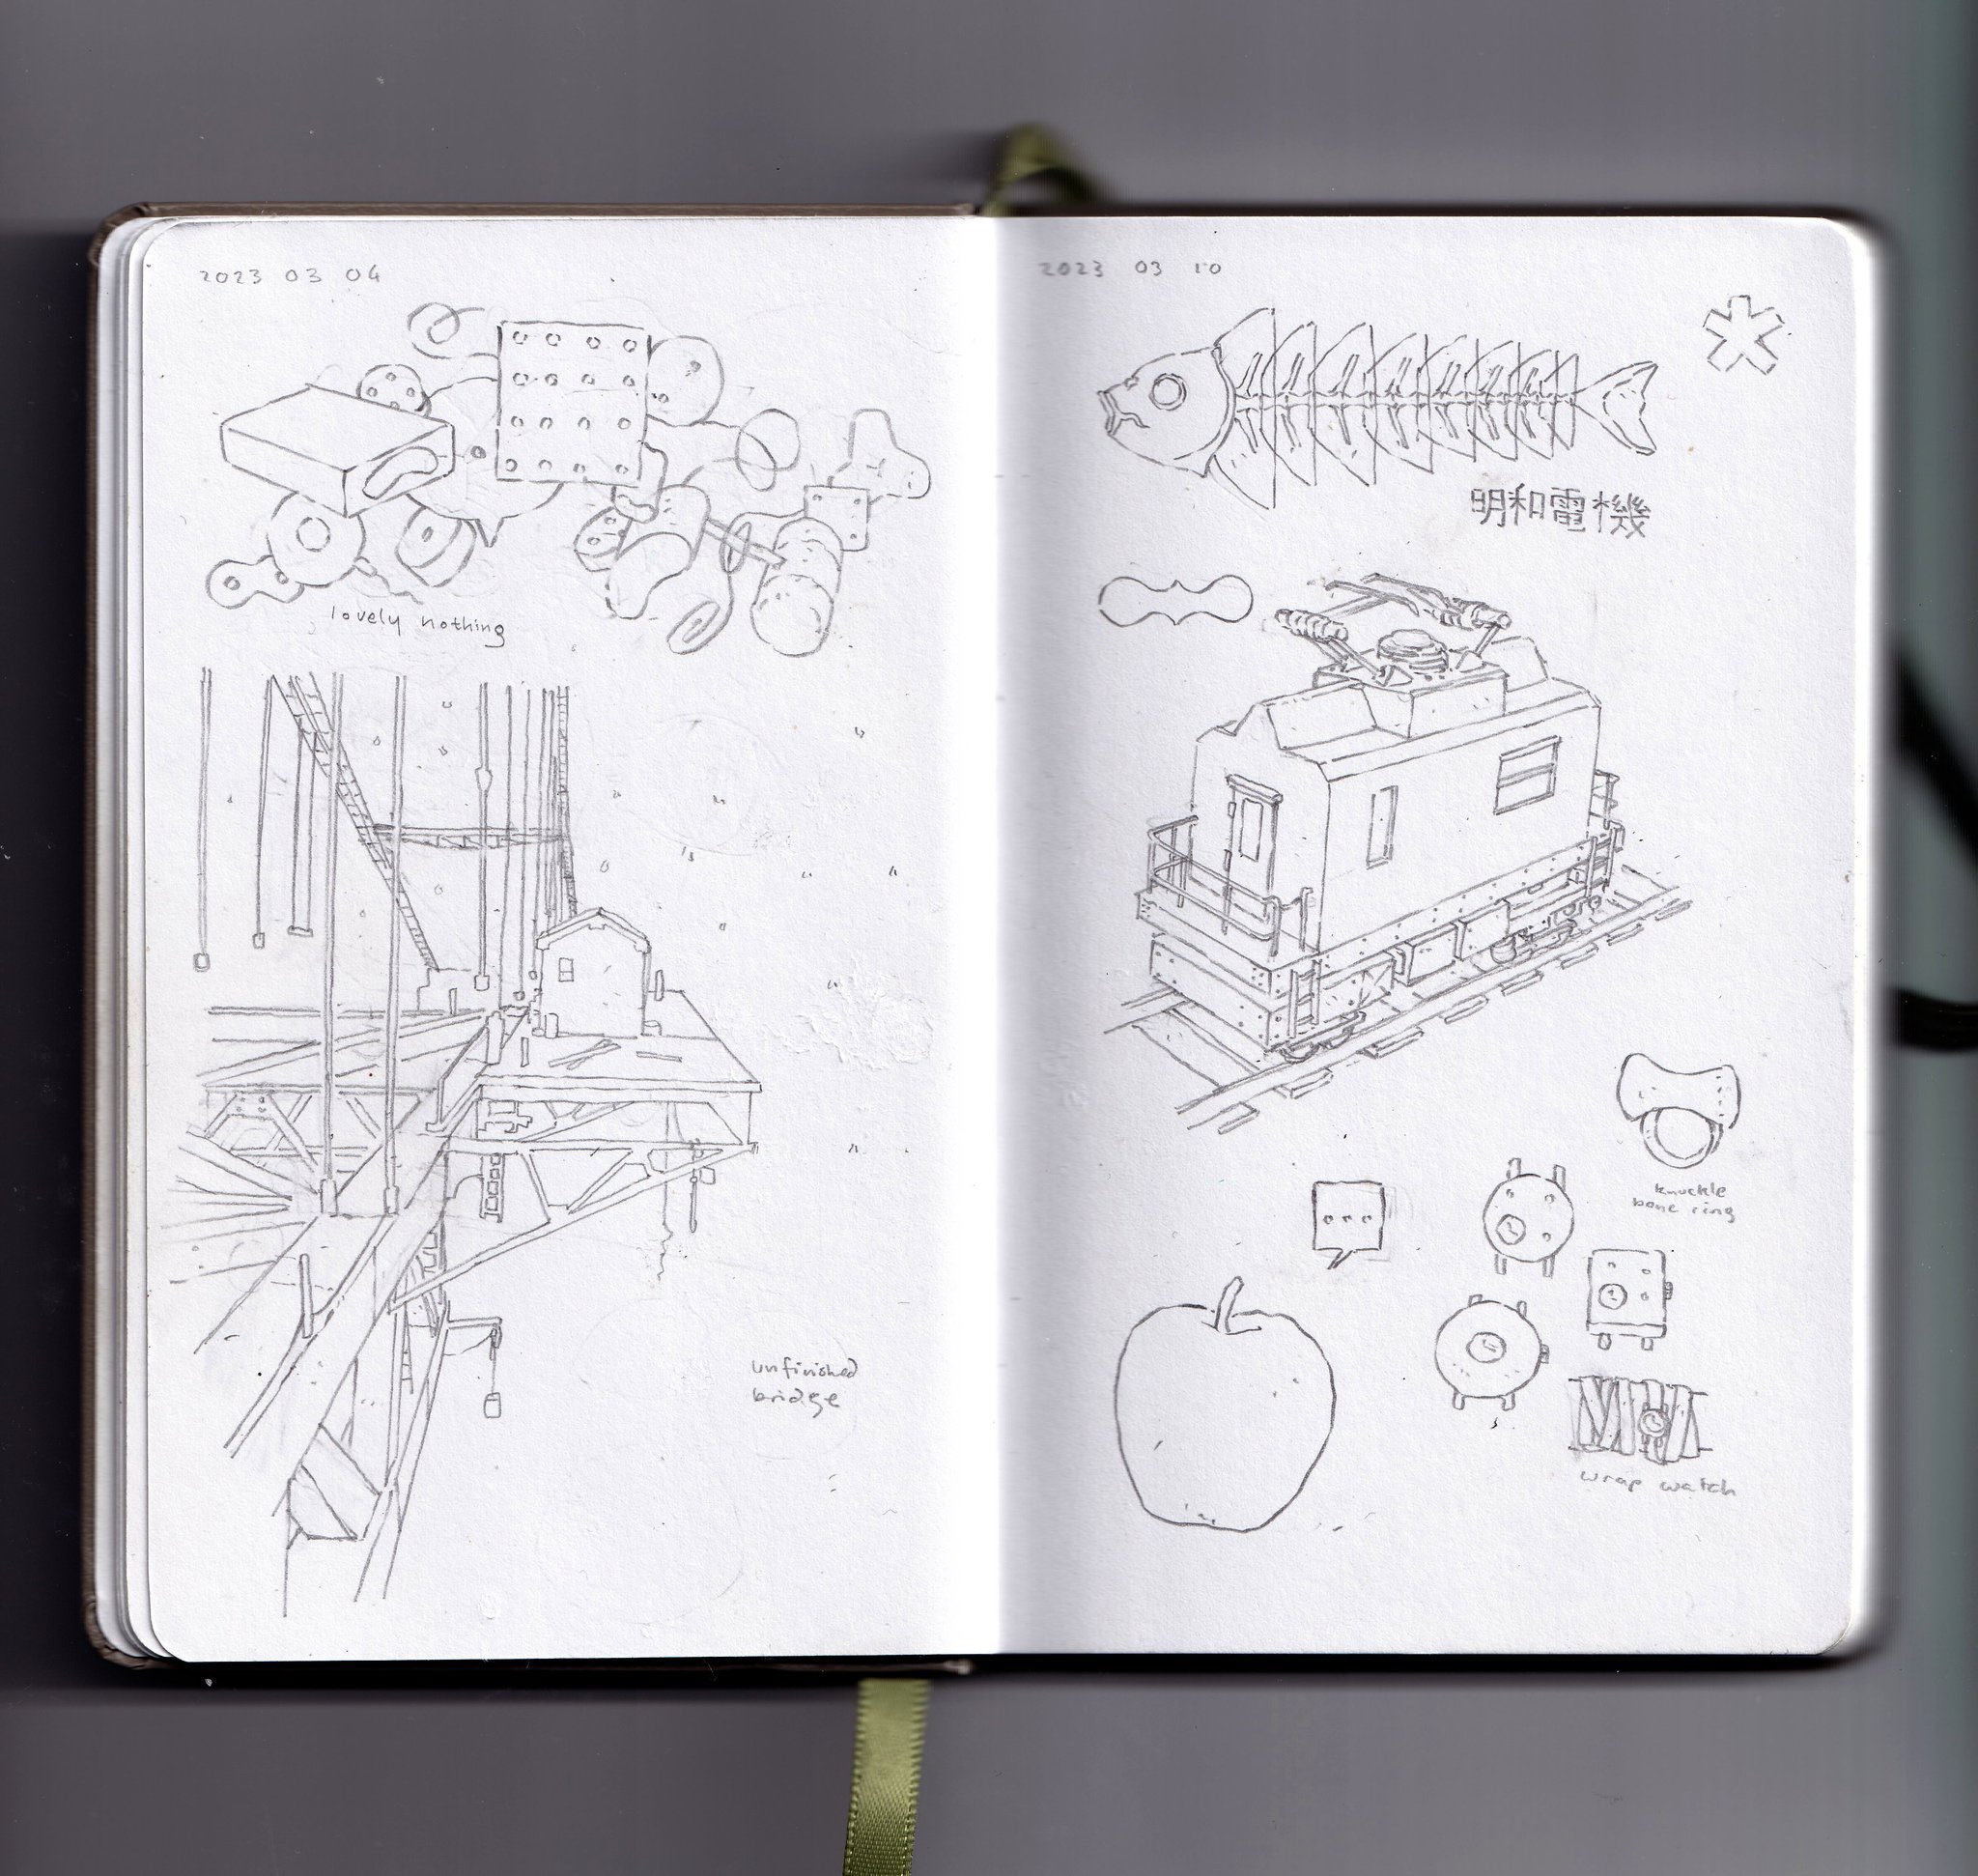 2023 03 04
lovely nothing
unfinished
bridge
2023 03 10
明和電機
knuckle
bone ring
wrap watch